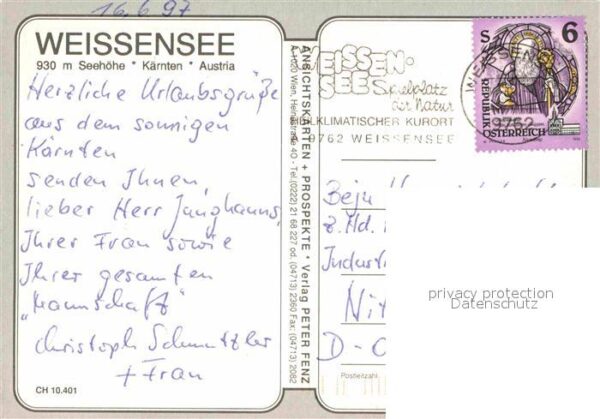 16.6.97
WEISSENSEE
930 m Seehöhe * Kärnten * Austria
Herzliche Urlaubsgrüße
aus dem sonnigen
Kärnten
senden Ihnen,
lieber Herr Junghanns,
Ihrer Frau sowie
Ihrer gesamten
"Mannschaft"
Christoph Schmutzler
+ Frau
CH 10.401
ANSICHTSKARTEN + PROSPEKTE * Verlag PETER FENZ
WEISSEN-
SEE Spielplatz
der Natur
HEILKLIMATISCHER KURORT
9762 WEISSENSEE
S 6
REPUBLIK
ÖSTERREICH
9762
z. Hd.
D-
Postleitzahl
privacy protection
Datenschutz